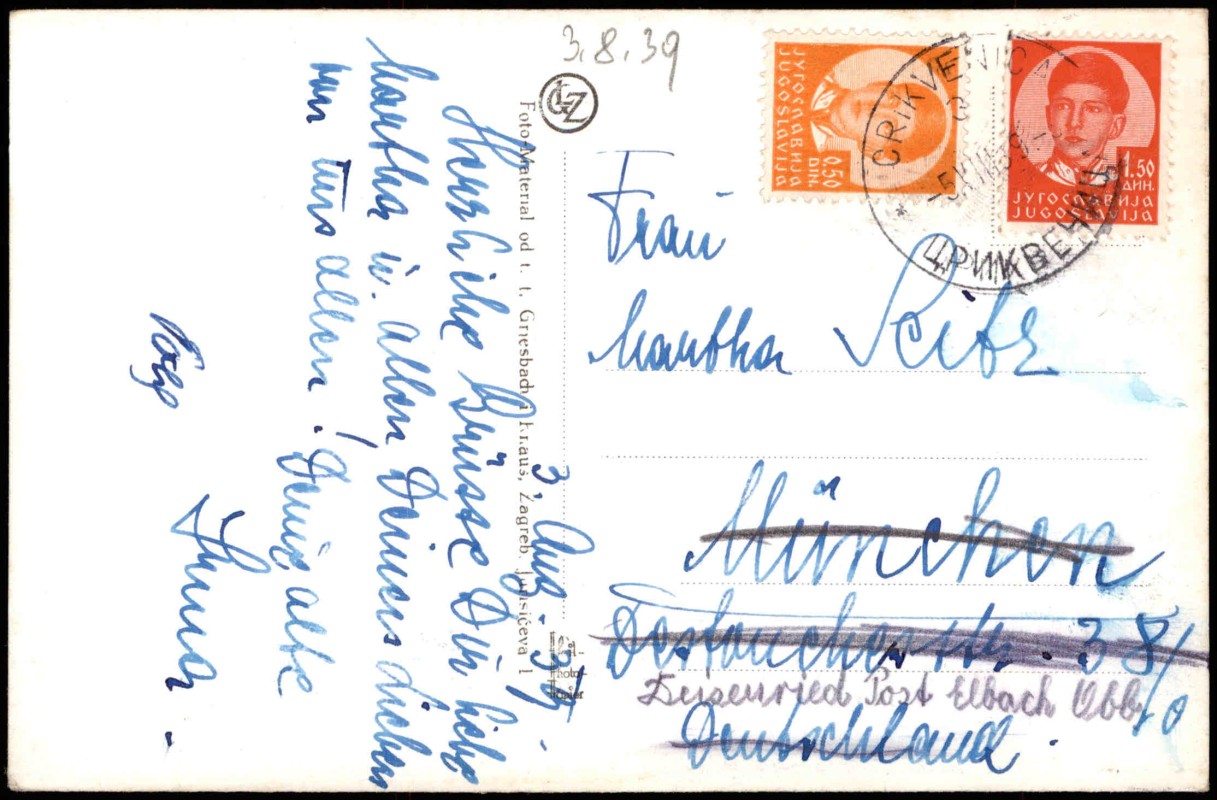 3.8.39
3. Aug. 39.
Herzliche Grüsse Dir liebe
Martha u. allen Deinen Lieben
von uns allen! Deine alte
Foto-Material od t. t. Griesbach i Kraus, Zagreb, Jurišićeva 1
ЈУГОСЛАВИЈА
JUGOSLAVIJA
0.50
DIN.
1.50
ДИН.
ЈУГОСЛАВИЈА
JUGOSLAVIJA
CRIKVENICA
-5.VIII.39
ЦРИКВЕНИЦА
Frau
Martha Seitz
München
Destouchesstr. 38/0
Post Elbach Obb.
Deutschland